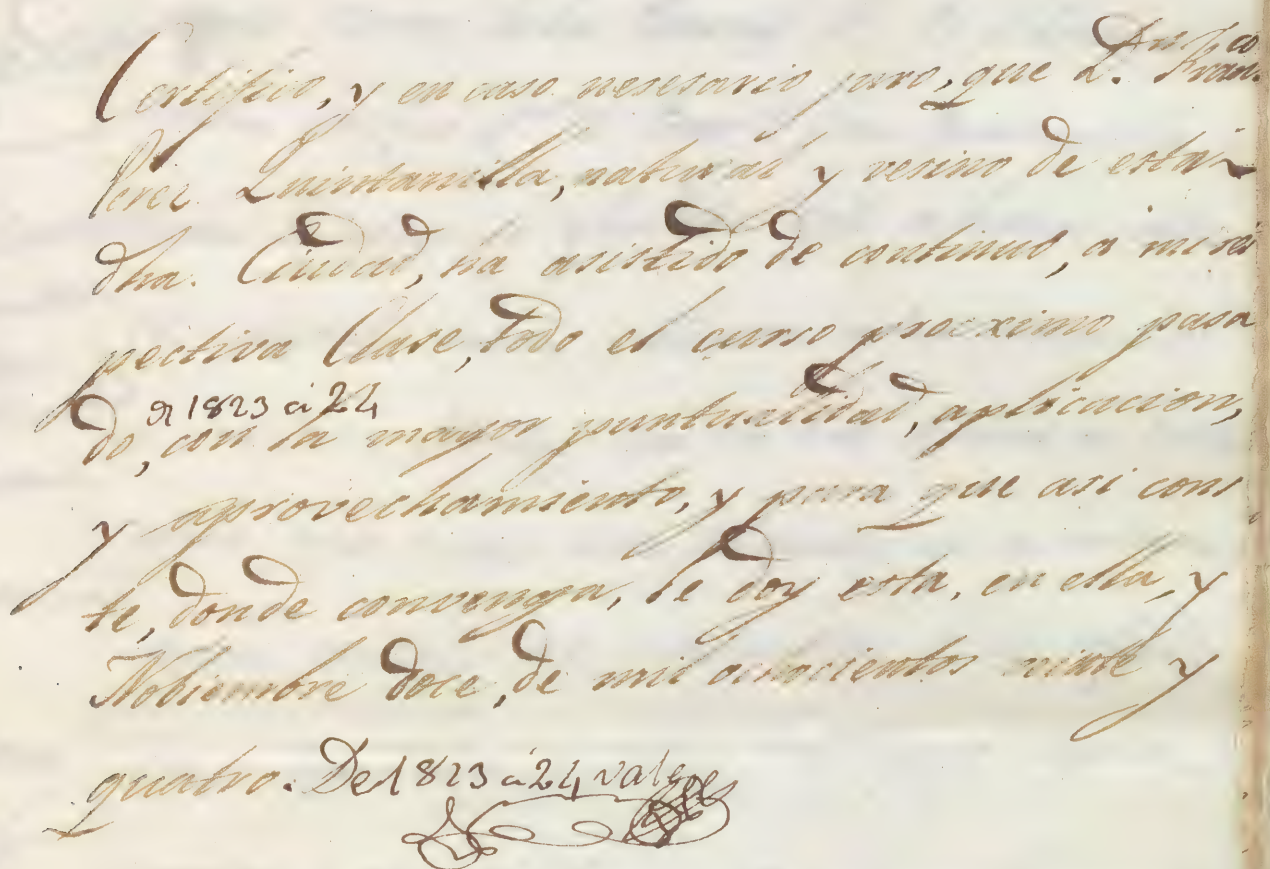 Certifico, y en caso nesesario juro, que D. Fran.co
Perez Quintanilla, natural y vesino de esta
dha. Ciudad, ha asistido de continuo, a mi res
pectiva Clase, todo el curso procximo pasa
do, de 1823 á 24 con la mayor puntualidad, aplicacion,
y aprovechamiento, y para que asi cons
te, donde convenga, le doy esta, en ella, y
Nobiembre doce, de mil ochocientos vinte y
quatro. De 1823 á 24 vale